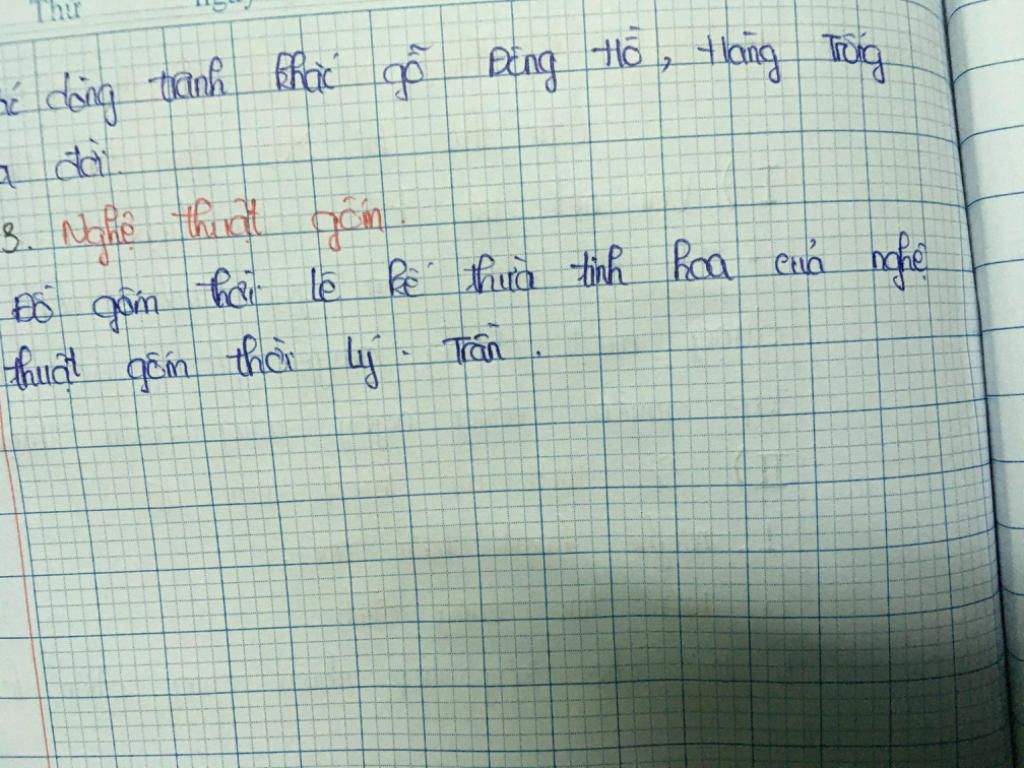 Thứ ngày
dòng tranh khắc gỗ Đông Hồ, Hàng Trống
đời.
3. Nghệ thuật gốm.
Đồ gốm thời Lê kế thừa tinh hoa của nghệ
thuật gốm thời Lý - Trần.